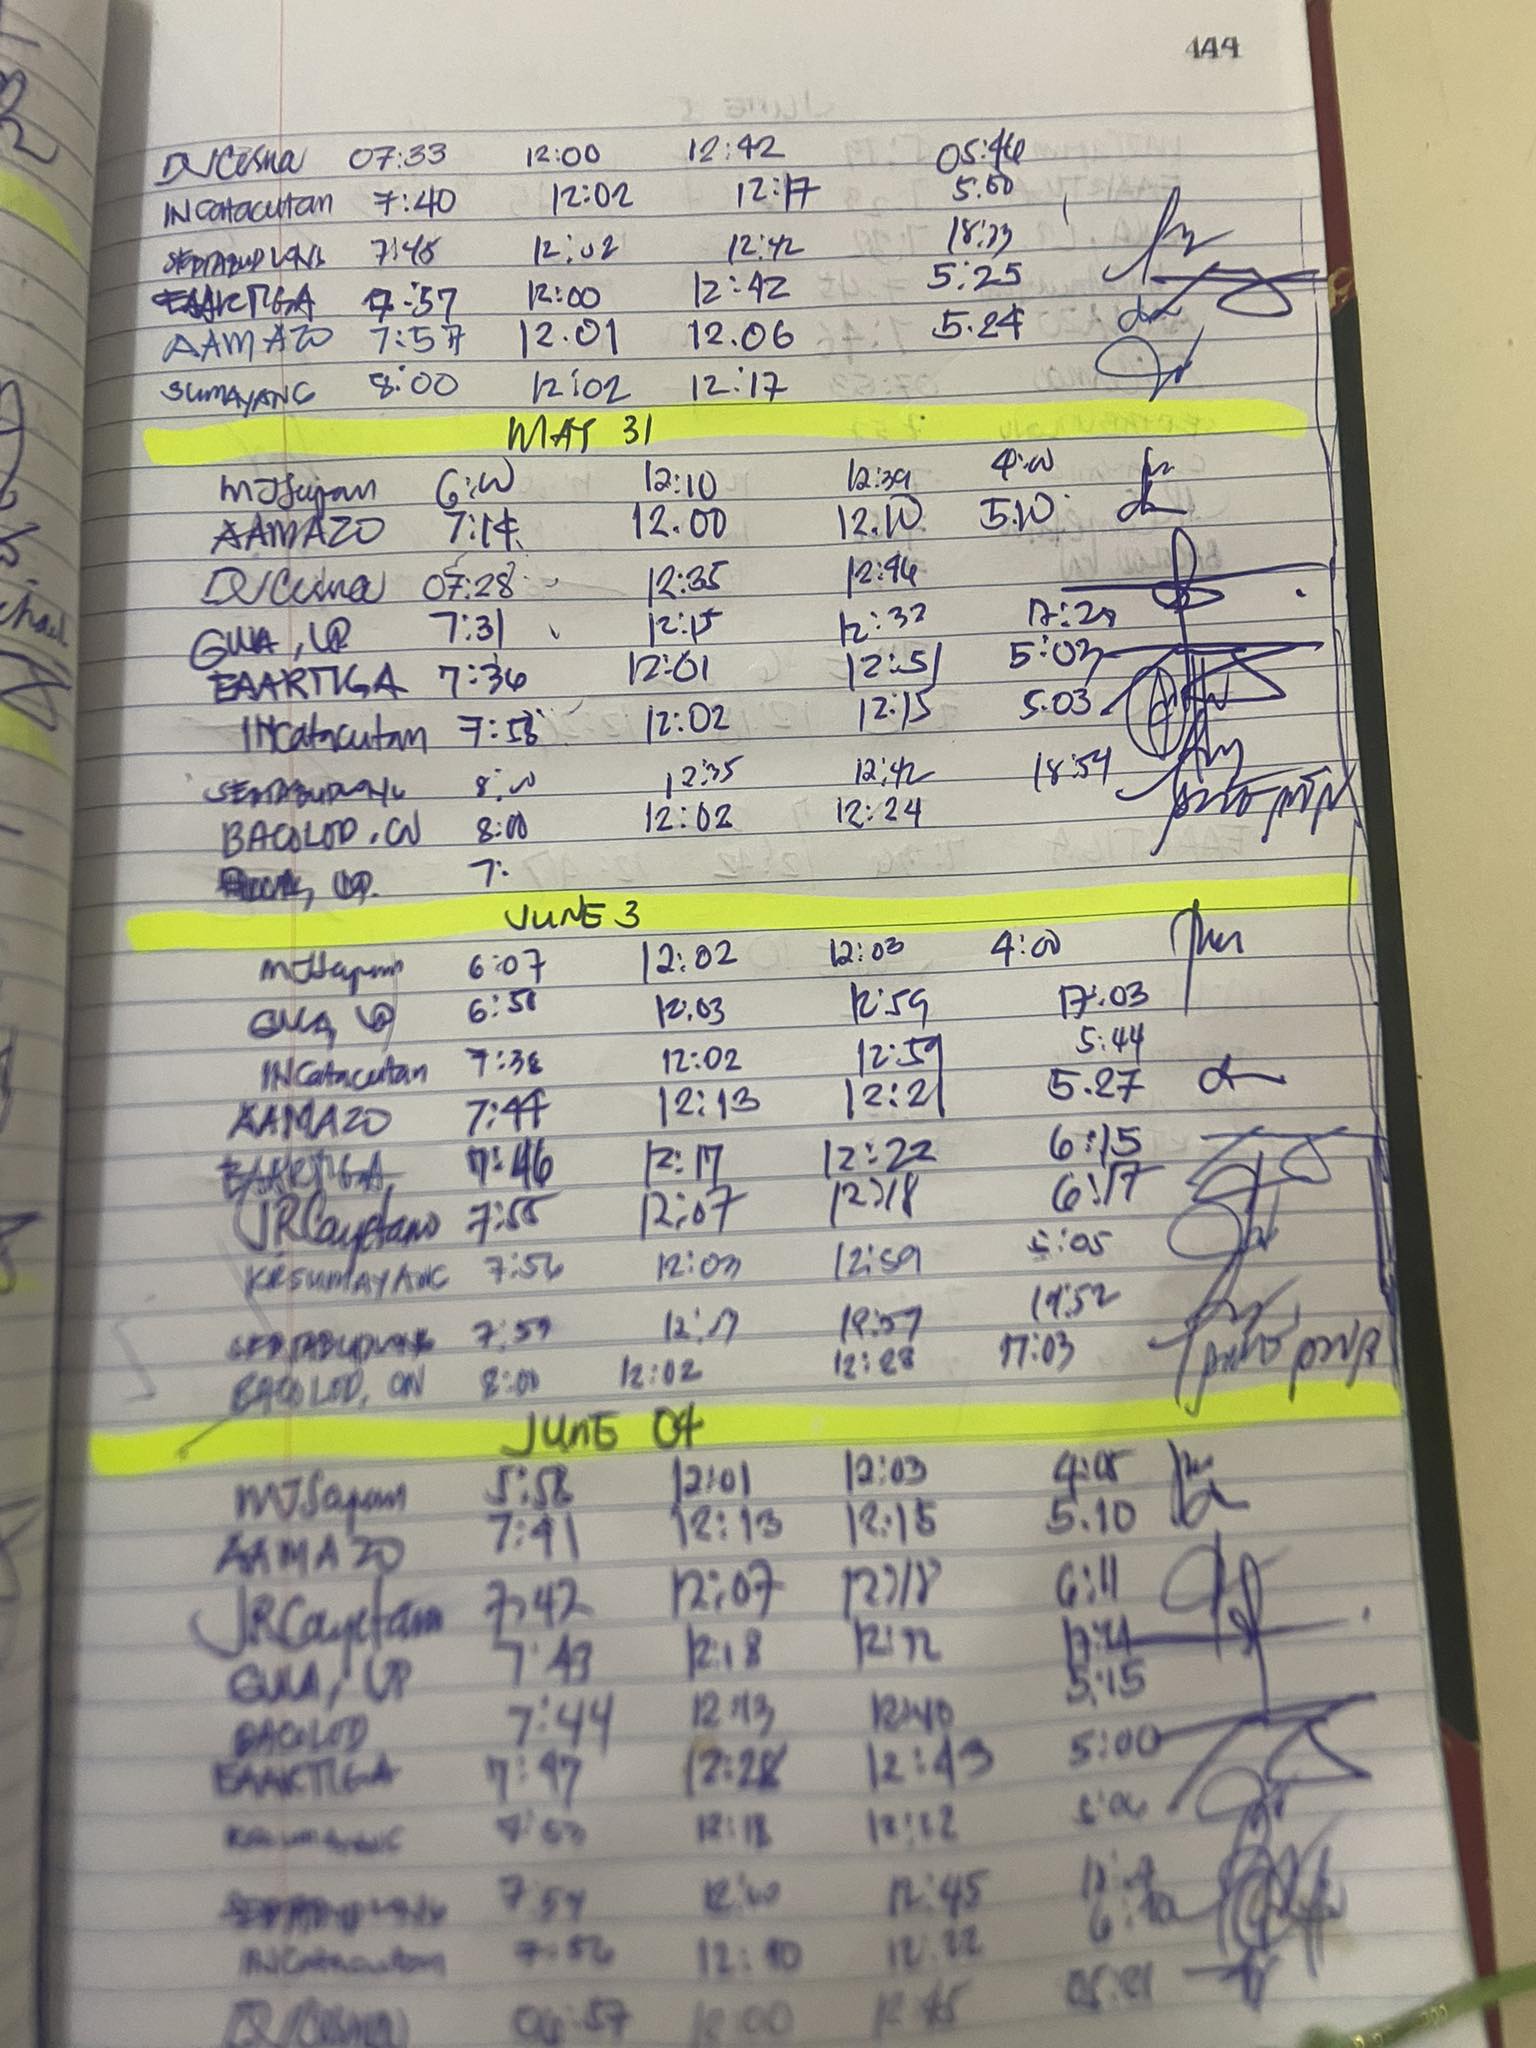 444
DJCesna 07:33 12:00 12:42 05:46
INCatacutan 7:40 12:02 12:17 5:50
7:45 12:02 12:42 18:33
EAARTIGA 7:57 12:00 12:42 5:25
AAMAZO 7:57 12.01 12.06 5.24
SUMAYANG 8:00 12:02 12:17
MAY 31
MJSayan 6:00 12:10 12:39 4:00
AAMAZO 7:14 12.00 12.10 5.10
DJCesna 07:28 12:35 12:46
GWA, UP 7:31 12:15 12:32 17:28
EAARTIGA 7:36 12:01 12:51 5:03
INCatacutan 7:58 12:02 12:15 5:03
8:00 12:35 12:42 18:54
BACOLOD, CN 8:00 12:02 12:24
7:
JUNE 3
MJSayan 6:07 12:02 12:03 4:00
GWA, UP 6:58 12:03 12:59 17:03
INCatacutan 7:38 12:02 12:59 5:44
AAMAZO 7:44 12:13 12:21 5.27
EAARTIGA 7:46 12:17 12:22 6:15
JRCayetano 7:55 12:07 12:18 6:17
KRSUMAYANG 7:56 12:03 12:59 5:05
7:59
BACOLOD, CN 8:00 12:02 12:28 17:03
JUNE 04
MJSayan 5:58 12:01 12:03 4:05
AAMAZO 7:41 12:13 12:15 5.10
JRCayetano 7:42 12:07 12:18 6:11
GWA, UP 7:43 12:18
BACOLOD 7:44 12:13 12:40 5:15
EAARTIGA 7:47 12:28 12:43 5:00
KRSUMAYANG 7:53 12:18 12:22 5:06
7:54 12:45
INCatacutan 7:56 12:22
DJCesna 12:00 12:45